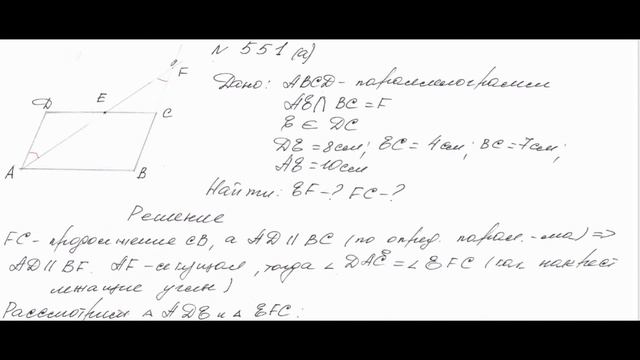 N 551 (а)
Дано: ABCD - параллелограмм
AE ∩ BC = F
E ∈ DC
DE = 8см; EC = 4см; BC = 7см;
AE = 10см
Найти: EF-? FC-?
D E C F
A B
Решение
FC - продолжение CB, а AD || BC (по опред. парал.-ма) =>
AD || BF. AF - секущая, тогда ∠ DAE = ∠ EFC (как накрест
лежащие углы)
Рассмотрим △ ADE и △ EFC: